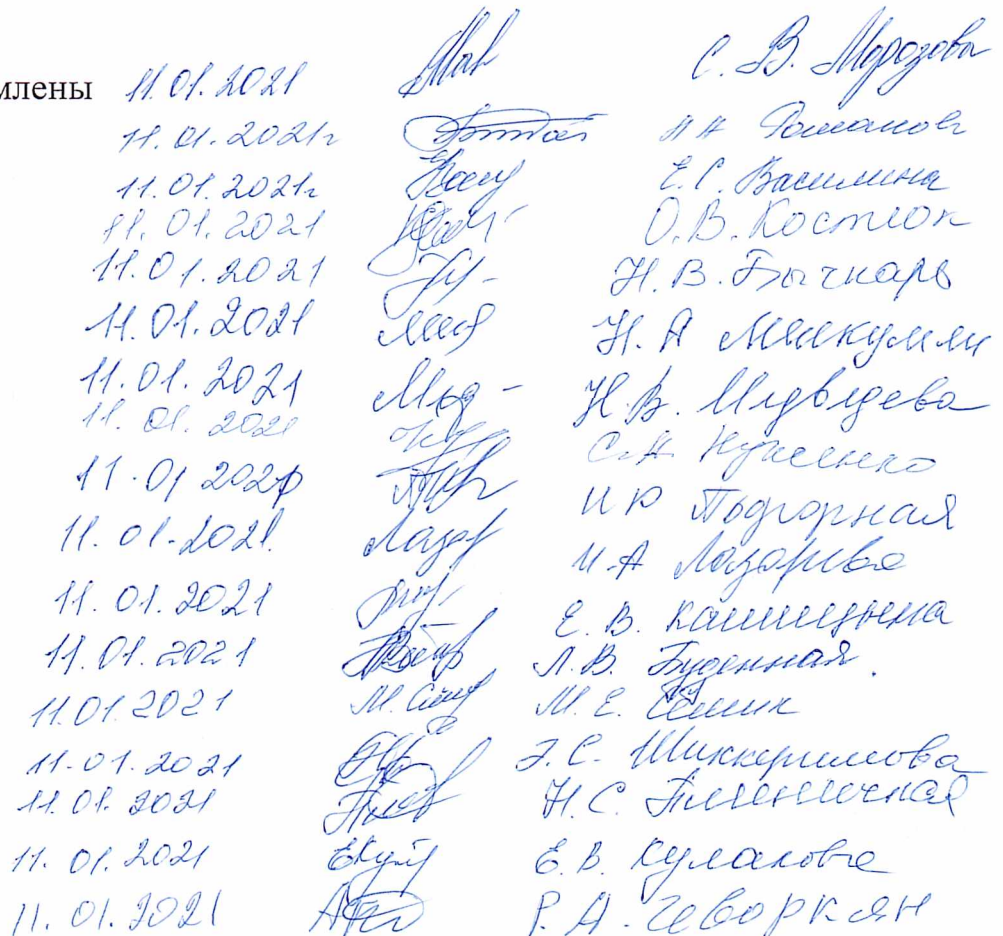 млены 11.01.2021 С. В. Морозова
11.01.2021г Романова
11.01.2021г Е.С. Василина
11.01.2021 О.В. Костюк
11.01.2021 Н.В. Бычкарь
11.01.2021 Н.А
11.01.2021 Н.В. Медведева
11.01.2021 С.А
11.01 2021 И Ю Подгорная
11.01.2021. И.А Лазарева
11.01.2021 Е.В.
11.01.2021 Л.В. Буденная.
11.01.2021 М.Е. Семик
11.01.2021 Э.С. Шиккеримова
11.01.2021 Н.С. Пшеничная
11.01.2021 Е.В. Кулакова
11.01.2021 Р.А. Геворкян